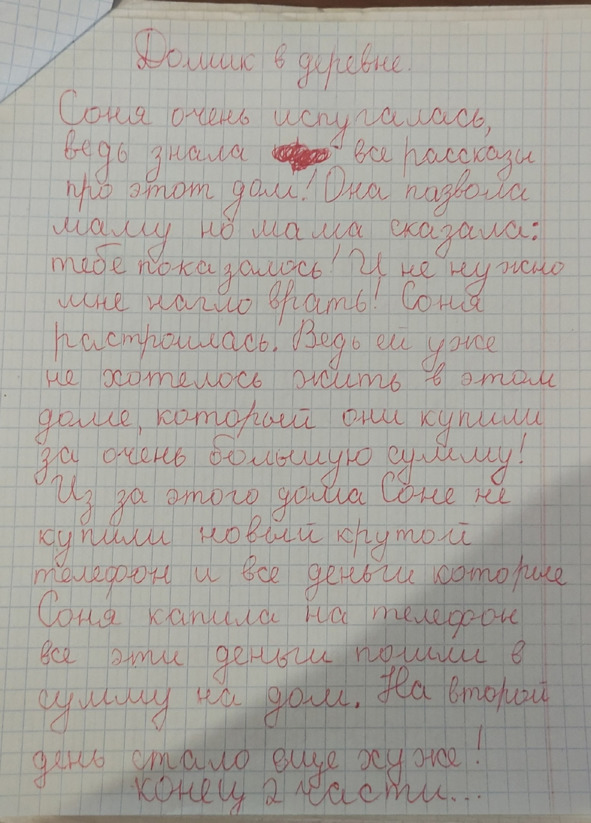 Домик в деревне.
Соня очень испугалась,
ведь знала все рассказы
про этот дом! Она пазвола
маму но мама сказала:
тебе показалось! И не нужно
мне нагло врать! Соня
растроилась. Ведь ей уже
не хотелось жить в этом
доме, который они купили
за очень большую сумму!
Из за этого дома Соне не
купили новый крутой
телефон и все деньги которые
Соня капила на телефон
все эти деньги пошли в
сумму на дом. На второй
день стало еще хуже!
конец 2 части...